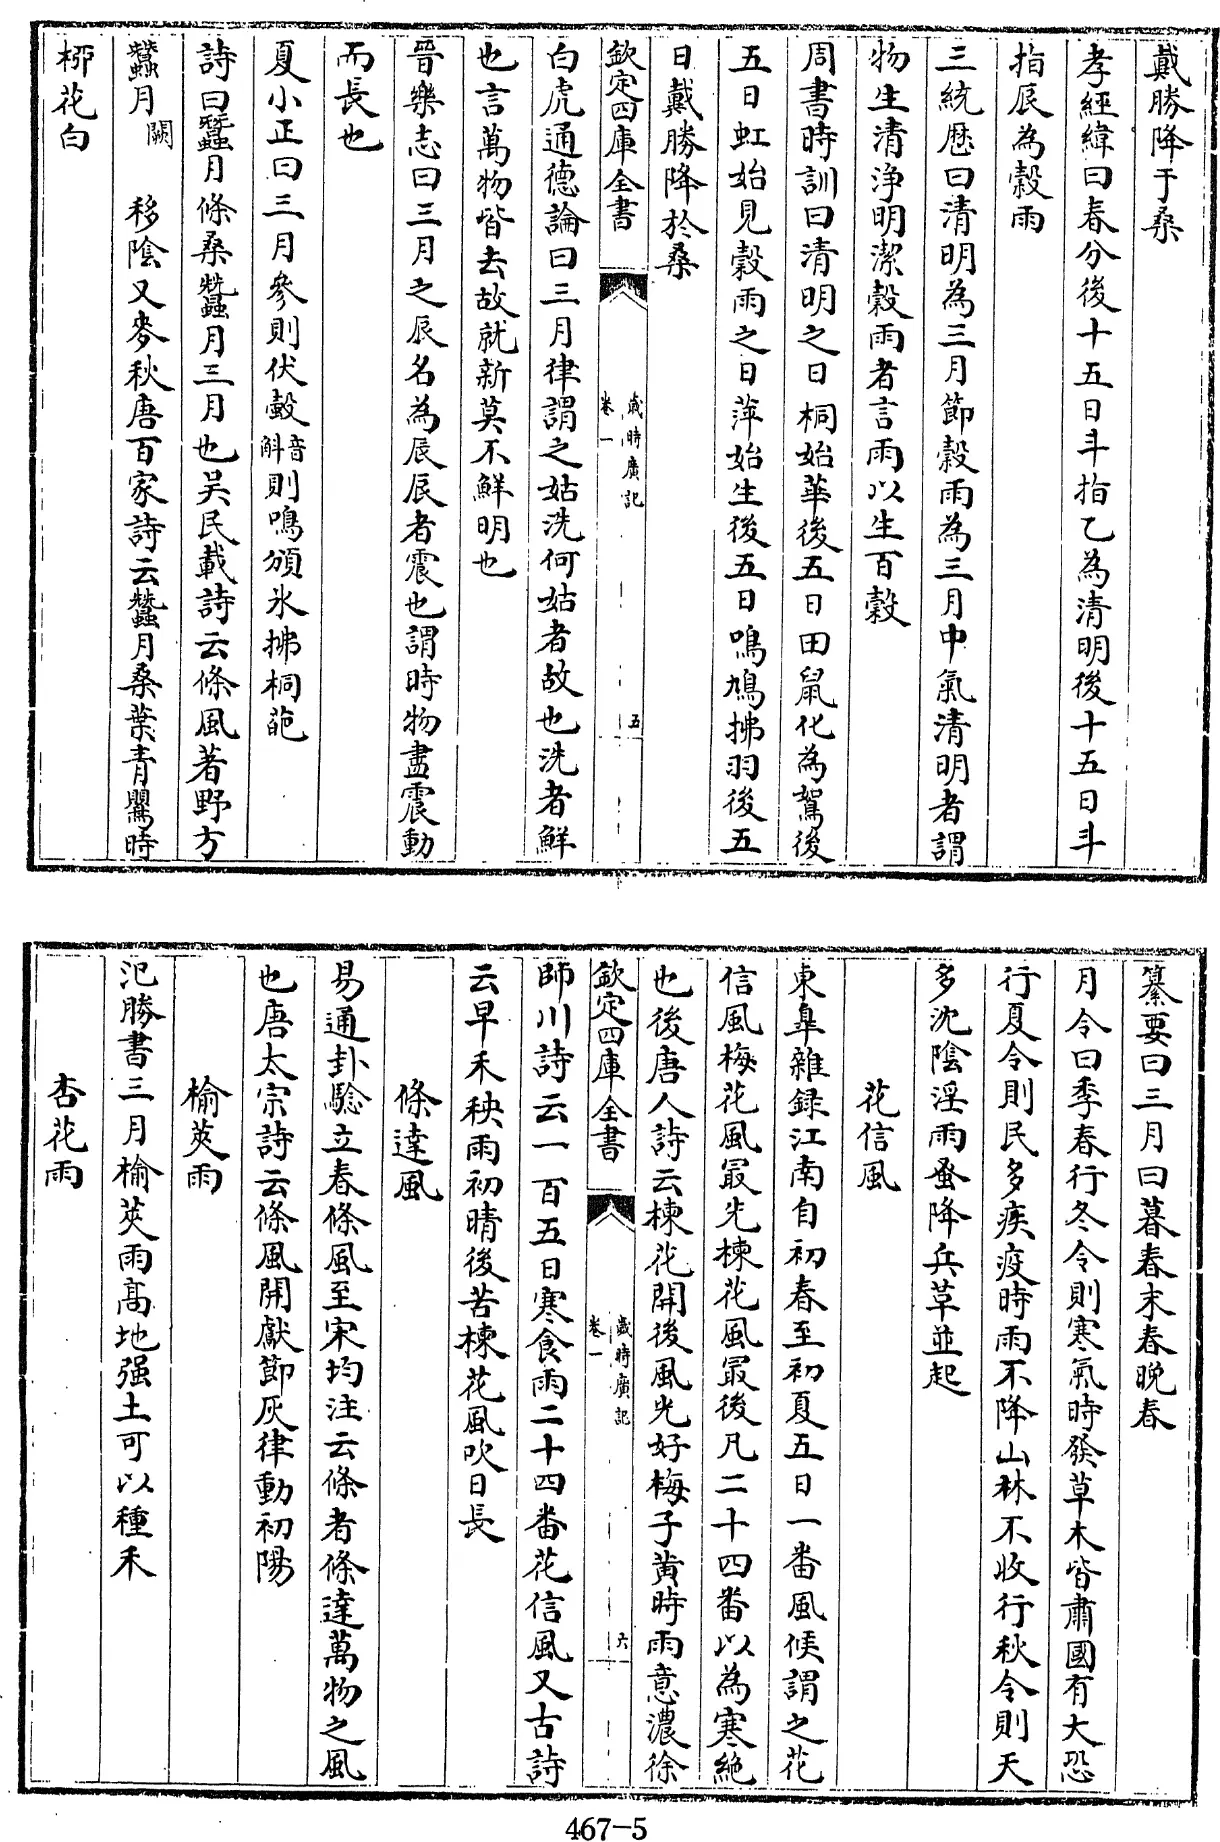 戴勝降于桑
孝經緯曰春分後十五日斗指乙為清明後十五日斗
指辰為穀雨
三統歷曰清明為三月節穀雨為三月中氣清明者謂
物生清淨明潔穀雨者言雨以生百穀
周書時訓曰清明之日桐始華後五日田鼠化為鴽後
五日虹始見穀雨之日萍始生後五日鳴鳩拂羽後五
日戴勝降於桑
欽定四庫全書
歲時廣記
卷一
五
白虎通德論曰三月律謂之姑洗何姑者故也洗者鮮
也言萬物皆去故就新莫不鮮明也
晉樂志曰三月之辰名為辰辰者震也謂時物盡震動
而長也
夏小正曰三月參則伏螜音斛則鳴頒氷拂桐葩
詩曰蠶月條桑蠶月三月也吳民載詩云條風著野方
蠶月闕 移陰又麥秋唐百家詩云蠶月桑葉青鸎時
柳花白
纂要曰三月曰暮春末春晚春
月令曰季春行冬令則寒氣時發草木皆肅國有大恐
行夏令則民多疾疫時雨不降山林不收行秋令則天
多沈陰淫雨蚤降兵草並起
花信風
東臯雜録江南自初春至初夏五日一番風候謂之花
信風梅花風最先楝花風最後凡二十四番以為寒絶
也後唐人詩云楝花開後風光好梅子黄時雨意濃徐
欽定四庫全書
歲時廣記
卷一
六
師川詩云一百五日寒食雨二十四番花信風又古詩
云早禾秧雨初晴後苦楝花風吹日長
條達風
易通卦驗立春條風至宋均注云條者條達萬物之風
也唐太宗詩云條風開獻節灰律動初陽
榆莢雨
氾勝書三月榆莢雨髙地强土可以種禾
杏花雨
467-5